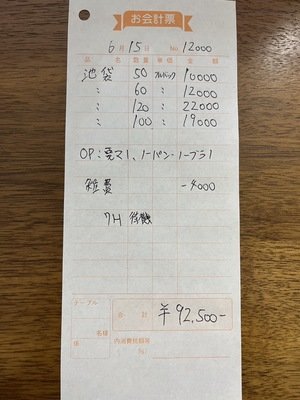 お会計票
6月15日 No.12000
品名 数量 単価 金額
池袋 50 フルバック 10000
〃 60 〃 12000
〃 120 〃 22000
〃 100 〃 19000
OP:恋マ1、ノーパン・ノーブラ1
雑費 -4000
7H 待機
テーブル
名様
係
合計 ¥92,500-
内消費税額等
%)